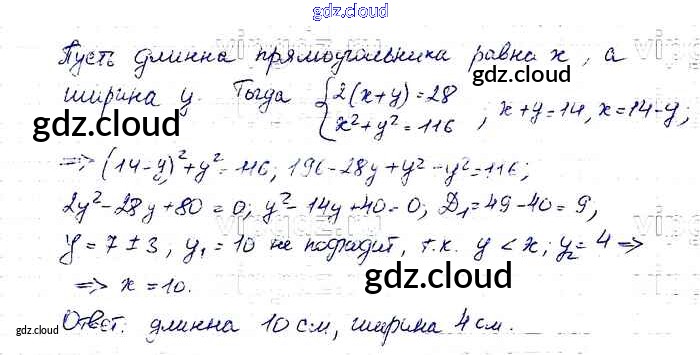 gdz.cloud
Пусть длинна прямоугольника равна x, а
gdz.cloud
ширина y. Тогда { 2(x+y)=28
x²+y²=116 , x+y=14, x=14-y;
gdz.cloud
=> (14-y)²+y²=116; 196-28y+y²-y²=116;
2y²-28y+80=0; y²-14y+40=0; D₁=49-40=9,
y=7±3, y₁=10 не подходит, т.к. y<x; y₂=4 =>
=> x=10.
gdz.cloud
gdz.cloud
Ответ: длинна 10см, ширина 4см.